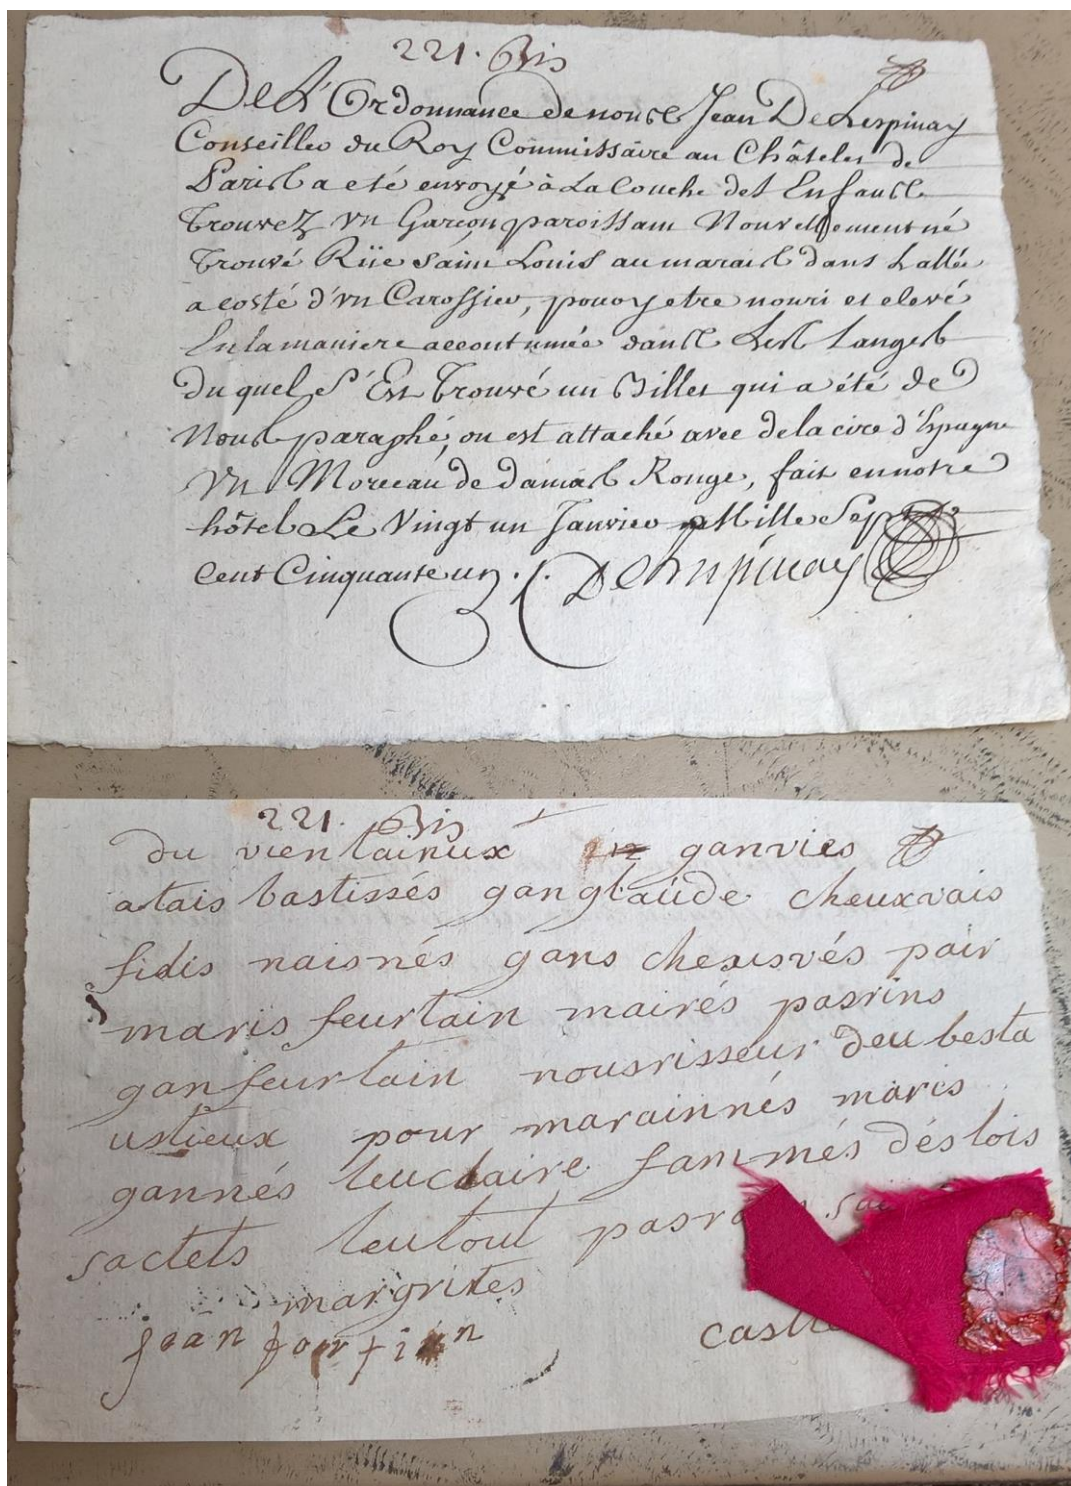 221. Bis
De L'Ordonnance de nous Jean De Lespinay
Conseiller du Roy Commissaire au Châtelet de
Paris a eté envoyé à La Couche des Enfants
Trouvez vn Garçon paroissant Nouvellement né
Trouvé Rüe saint Louis au marais dans L'allée
a costé d'vn Carossier, pour y etre nouri et elevé
En la maniere accoutumée dans Les Langes
du quel s'Est Trouvé un Billet qui a été de
Nous paraphé, ou est attaché avec de la cire d'Espagne
Vn Morceau de damas Rouge, fait en notre
hôtel Le Vingt un Janvier Mille Sept
cent Cinquante un. DeLespinay
221. Bis
du vientainux ganvies
atais bastissés ganglaude cheuxvais
fidis naisnés gans cheusvés pair
maris feurtain mairés pasrins
ganfeurtain nousrisseur deu besta
ustieux pour marainnés maris
gannés leuclaire fammés déslois
sactets leutout pasra
margrites
jean fortien